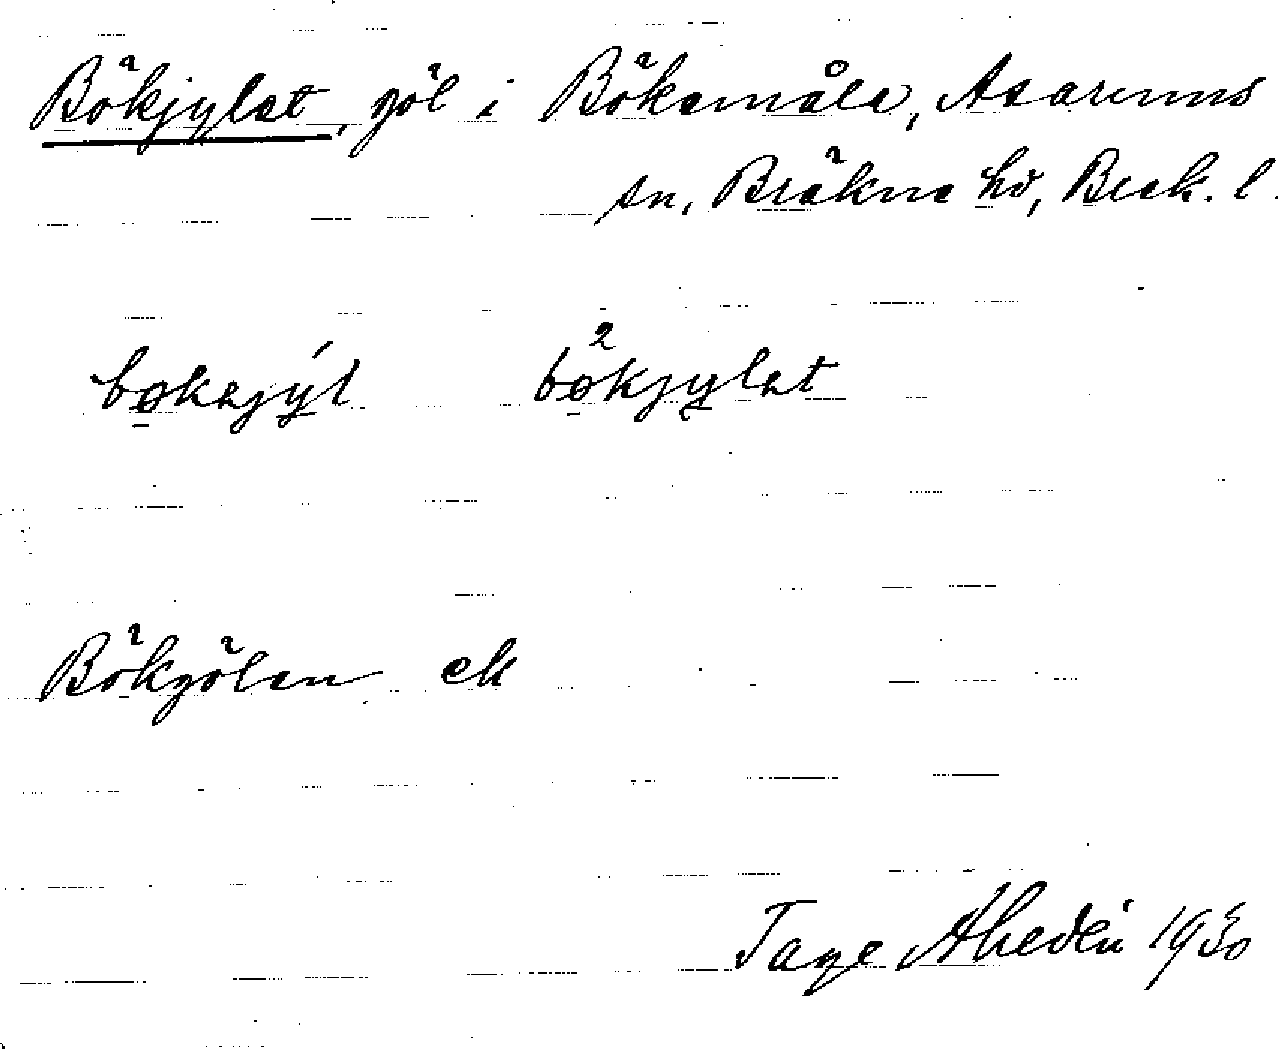 Bökjylet, göl i Bökemåla, Asarums
sn, Bräkne hd, Blek. l.
bøkajýl bø²kjylət
Bökgölen ek
Tage Ahedén 1930